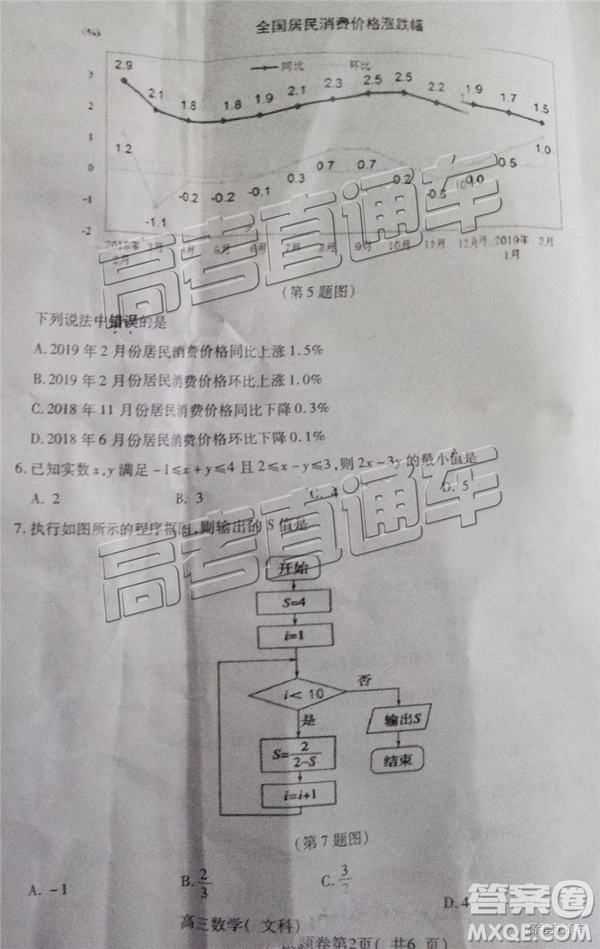 (%)
全国居民消费价格涨跌幅
同比 环比
3
2
1
0
-1
-2
2.9 2.1 1.8 1.8 1.9 2.1 2.3 2.5 2.5 2.2 1.9 1.7 1.5
1.2 -1.1 -0.2 -0.2 -0.1 0.3 0.7 0.7 0.2 0.0 0.5 1.0
2018年2月 3月 6月 9月 10月 11月 12月 2019年1月 2月
(第5题图)
下列说法中错误的是
A.2019年2月份居民消费价格同比上涨1.5%
B.2019年2月份居民消费价格环比上涨1.0%
C.2018年11月份居民消费价格同比下降0.3%
D.2018年6月份居民消费价格环比下降0.1%
6.已知实数x,y满足-1≤x+y≤4且2≤x-y≤3,则2x-3y的最小值是
A. 2 B. 3 C. 4 D. 5
7.执行如图所示的程序框图,则输出的S值是
开始
S=4
i=1
i<10 否
是 输出S
S=2/(2-S) 结束
i=i+1
(第7题图)
A. -1 B. 2/3 C. 3/2 D. 4
高三数学(文科) 试题卷第2页(共6页)
高考直通车
高考直通车
答案圈
MXQE.COM